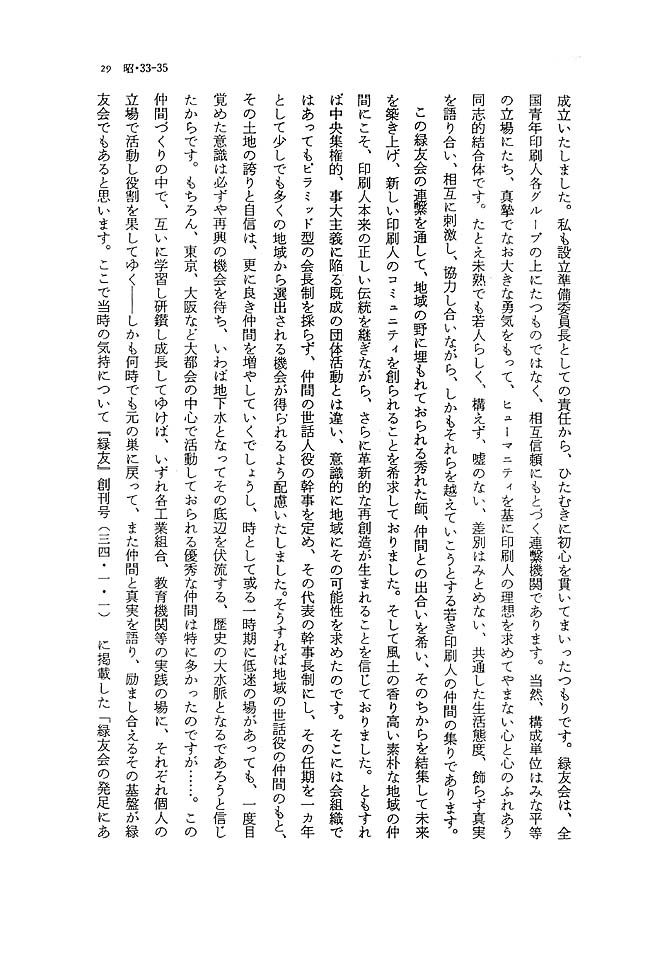 29　昭・33-35
成立いたしました。私も設立準備委員長としての責任から、ひたむきに初心を貫いてまいったつもりです。緑友会は、全
国青年印刷人各グループの上にたつものではなく、相互信頼にもとづく連繫機関であります。当然、構成単位はみな平等
の立場にたち、真摯でなお大きな勇気をもって、ヒューマニティを基に印刷人の理想を求めてやまない心と心のふれあう
同志的結合体です。たとえ未熟でも若人らしく、構えず、嘘のない、差別はみとめない、共通した生活態度、飾らず真実
を語り合い、相互に刺激し、協力し合いながら、しかもそれらを越えていこうとする若き印刷人の仲間の集りであります。
この緑友会の連繫を通して、地域の野に埋もれておられる秀れた師、仲間との出合いを希い、そのちからを結集して未来
を築き上げ、新しい印刷人のコミュニティを創られることを希求しておりました。そして風土の香り高い素朴な地域の仲
間にこそ、印刷人本来の正しい伝統を継ぎながら、さらに革新的な再創造が生まれることを信じておりました。ともすれ
ば中央集権的、事大主義に陥る既成の団体活動とは違い、意識的に地域にその可能性を求めたのです。そこには会組織で
はあってもピラミッド型の会長制を採らず、仲間の世話人役の幹事を定め、その代表の幹事長制にし、その任期を一カ年
として少しでも多くの地域から選出される機会が得られるよう配慮いたしました。そうすれば地域の世話役の仲間のもと、
その土地の誇りと自信は、更に良き仲間を増やしていくでしょうし、時として或る一時期に低迷の場があっても、一度目
覚めた意識は必ずや再興の機会を待ち、いわば地下水となってその底辺を伏流する、歴史の大水脈となるであろうと信じ
たからです。もちろん、東京、大阪など大都会の中心で活動しておられる優秀な仲間は特に多かったのですが……。この
仲間づくりの中で、互いに学習し研鑽し成長してゆけば、いずれ各工業組合、教育機関等の実践の場に、それぞれ個人の
立場で活動し役割を果してゆく――しかも何時でも元の巣に戻って、また仲間と真実を語り、励まし合えるその基盤が緑
友会でもあると思います。ここで当時の気持について『緑友』創刊号（三四・一・一）　に掲載した「緑友会の発足にあ